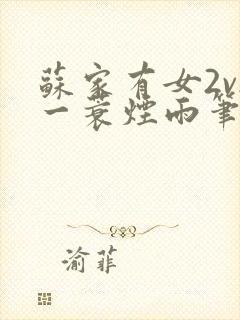 蘇家有女2v
一蓑煙雨筆
渝菲